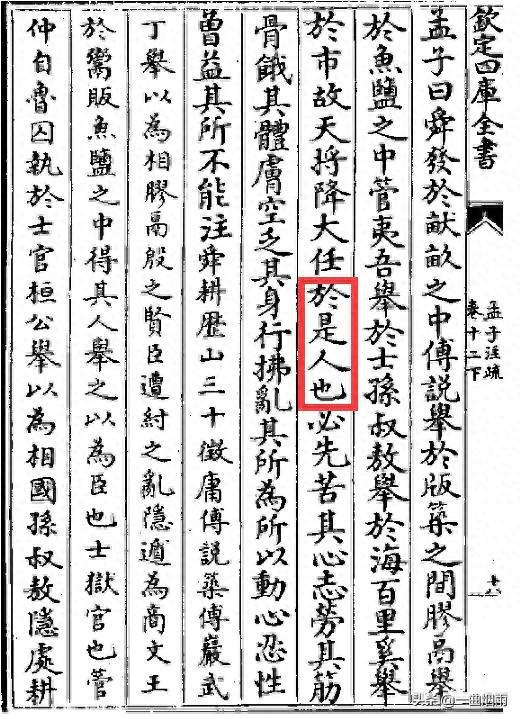 欽定四庫全書
孟子注疏
卷十二下
十六
孟子曰舜發於畎畝之中傅說舉於版築之間膠鬲舉
於魚鹽之中管夷吾舉於士孫叔敖舉於海百里奚舉
於市故天將降大任於是人也必先苦其心志勞其筋
骨餓其體膚空乏其身行拂亂其所為所以動心忍性
曾益其所不能注舜耕歷山三十徵庸傅說築傅巖武
丁舉以為相膠鬲殷之賢臣遭紂之亂隱遁為商文王
於鬻販魚鹽之中得其人舉之以為臣也士獄官也管
仲自魯囚執於士官桓公舉以為相國孫叔敖隱處耕
头条@一曲烟雨